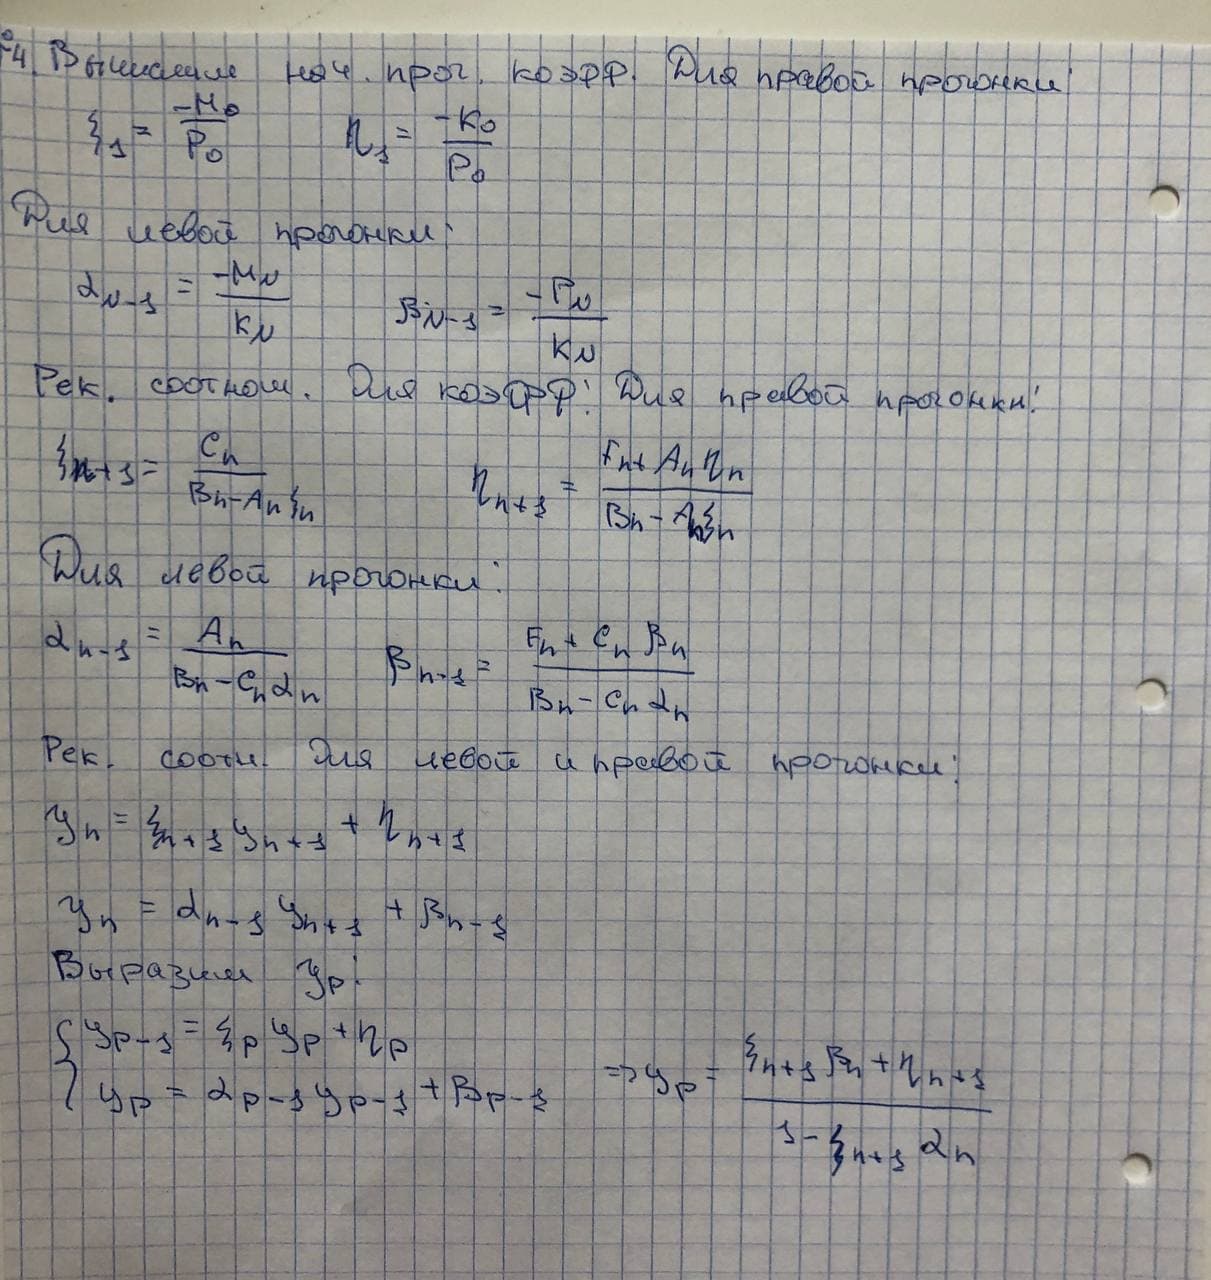 4. Вычислим нач. прог. коэфф. Для правой прогонки:
ξ₁ = -M₀/P₀   η₁ = -K₀/P₀
Для левой прогонки:
α_{N-1} = -M_N/K_N   β_{N-1} = -P_N/K_N
Рек. соотнош. Для коэфф: Для правой прогонки:
ξ_{n+1} = C_n/(B_n - A_n ξ_n)   η_{n+1} = (F_n + A_n η_n)/(B_n - A_n ξ_n)
Для левой прогонки:
α_{n-1} = A_n/(B_n - C_n α_n)   β_{n-1} = (F_n + C_n β_n)/(B_n - C_n α_n)
Рек. соотн. Для левой и правой прогонки:
y_n = ξ_{n+1} y_{n+1} + η_{n+1}
y_n = α_{n-1} y_{n+1} + β_{n-1}
Выразим y_p:
{ y_{p-1} = ξ_p y_p + η_p
y_p = α_{p-1} y_{p-1} + β_{p-1}   => y_p = (ξ_{n+1} β_n + η_{n+1})/(1 - ξ_{n+1} α_n)